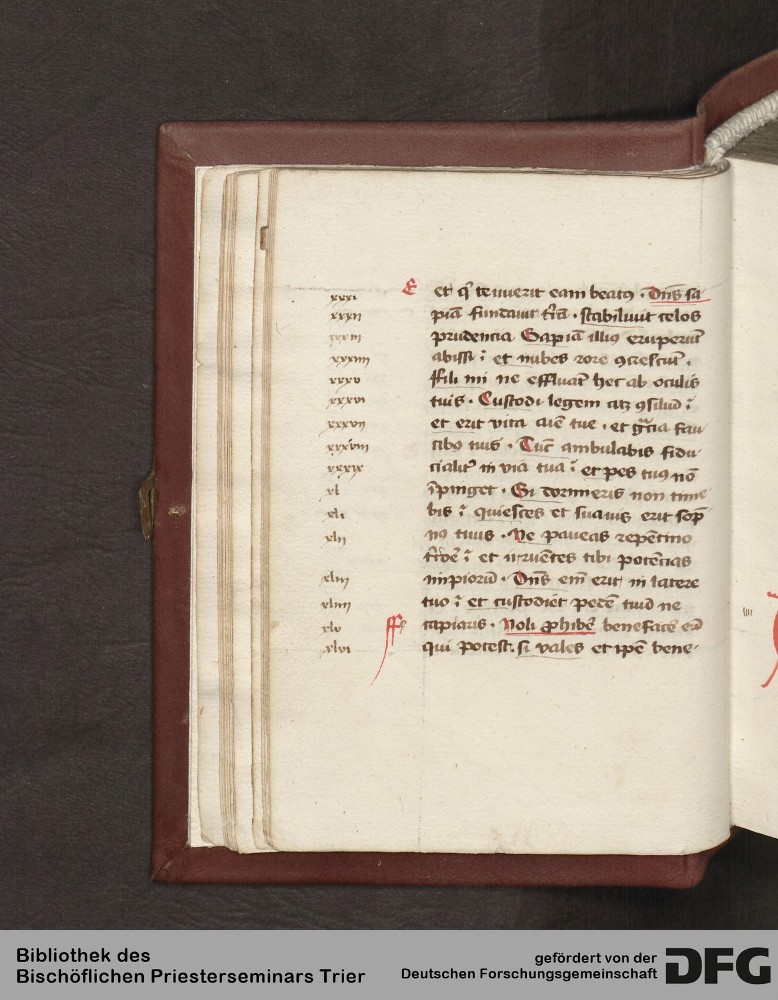 xxxi E et qͥ tenuerit eam beatꝰ · Dn̄s sa
xxxii piā fundauit t̄rā · stabiliuit celos
xxxiii prudencia Sapiā illiꝰ eruperūt
xxxiiii abissi ⁊ et nubes rore ꝯcrescūt .
xxxv Fili mi ne effluāt hec ab oculis
xxxvi tuis · Custodi legem atqꝫ ꝯsiliū ⁊
xxxvii et erit vita aīe tue · et gr̄cia fau
xxxviii cibꝰ tuis · Tūc ambulabis fidu
xxxix cialit᷑ in via tua ⁊ et pes tuꝰ nō
xl īpinget · Si dormieris non time
xli bis ⁊ quiesces et suauis erit sop̄
xlii nꝰ tuus · Ne paueas repentino
t̄rore ⁊ et irruētes tibi potēcias
xliii impiorū · Dn̄s em̄ erit in latere
xliiii tuo ⁊ et custodiet pedē tuū ne
xlv capiaris · Noli ꝓhibē benefac̄e eū
xlvi qui potest. si vales et ip̄e bene-
iiii
Bibliothek des
Bischöflichen Priesterseminars Trier
gefördert von der
Deutschen Forschungsgemeinschaft
DFG